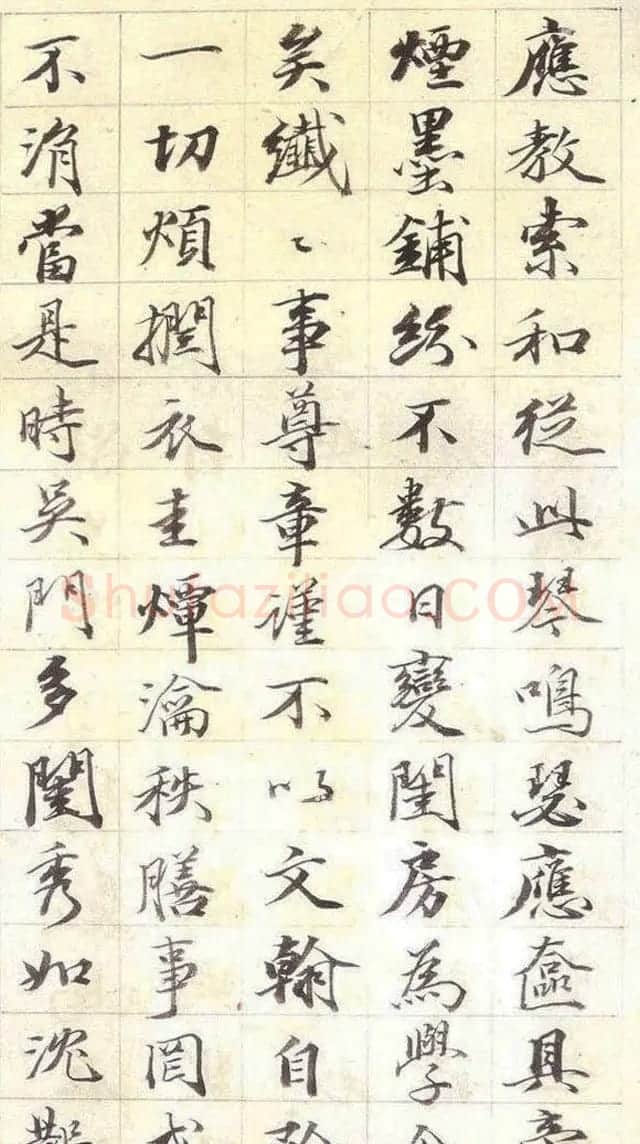 應教索和從此琴鳴瑟應奩具
煙墨鋪紛不數日變閨房為學
矣纖〻事尊章謹不以文翰自
一切煩撋衣圭燀瀹秩膳事罔
不涓當是時吳門多閨秀如沈
Shufaziliao.COM